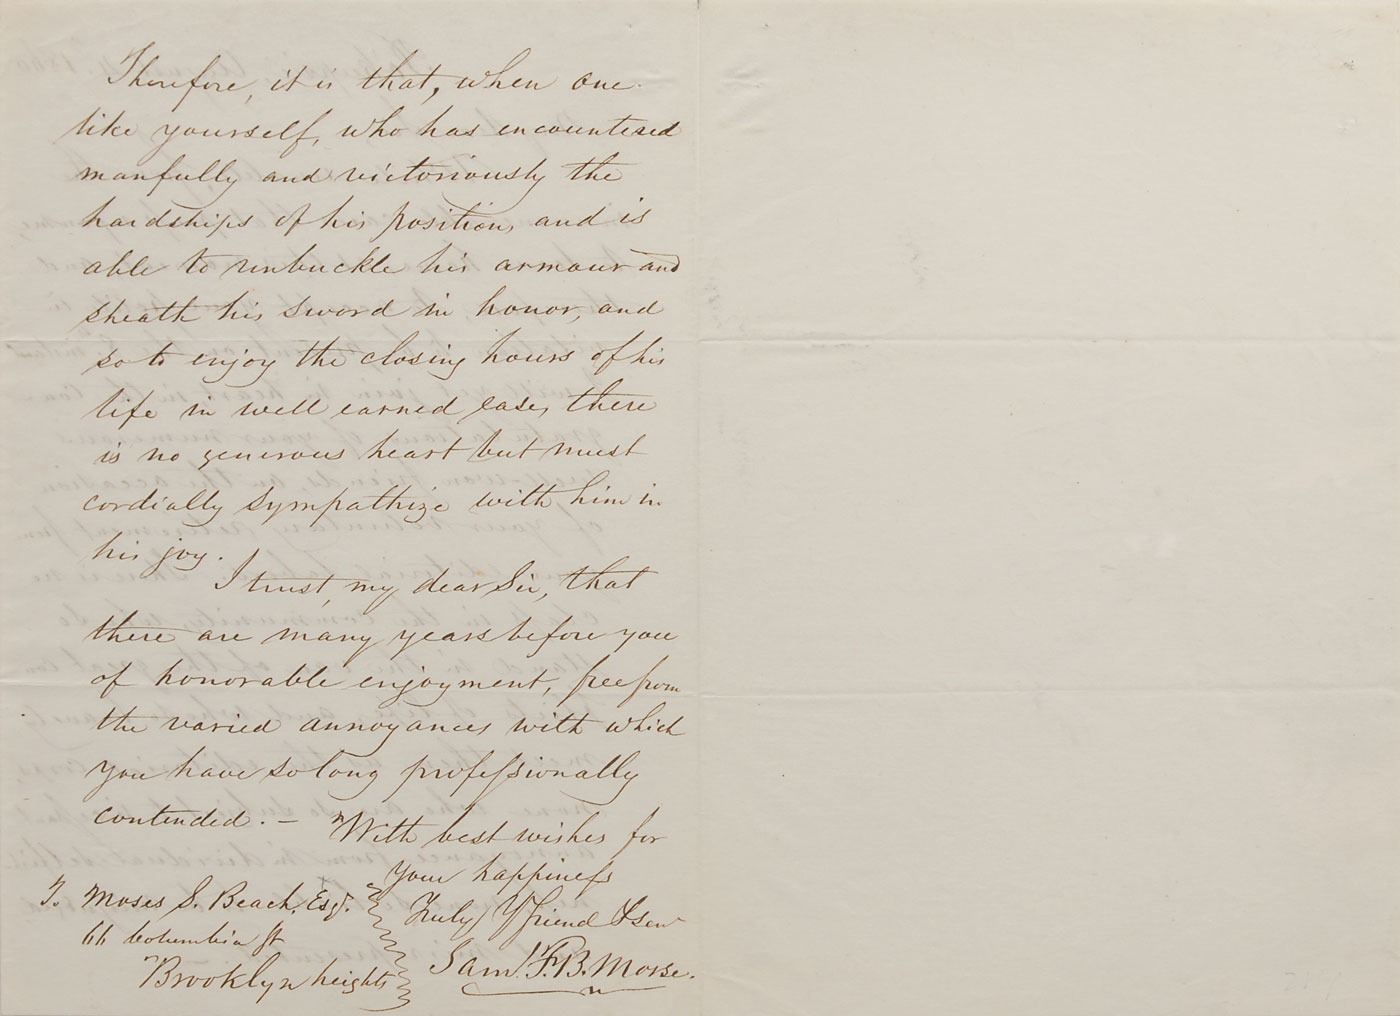 Therefore, it is that, when one
like yourself, who has encountered
manfully and victoriously the
hardships of his position, and is
able to unbuckle his armour and
sheath his sword in honor, and
so to enjoy the closing hours of his
life in well earned ease, there
is no generous heart but must
cordially sympathize with him in
his joy.
I trust, my dear Sir, that
there are many years before you
of honorable enjoyment, free from
the varied annoyances with which
you have so long professionally
contended. —
With best wishes for
your happiness
Truly Yr friend & servt
Saml. F. B. Morse.
To Moses S. Beach, Esqr.
66 Columbia St
Brooklyn heights